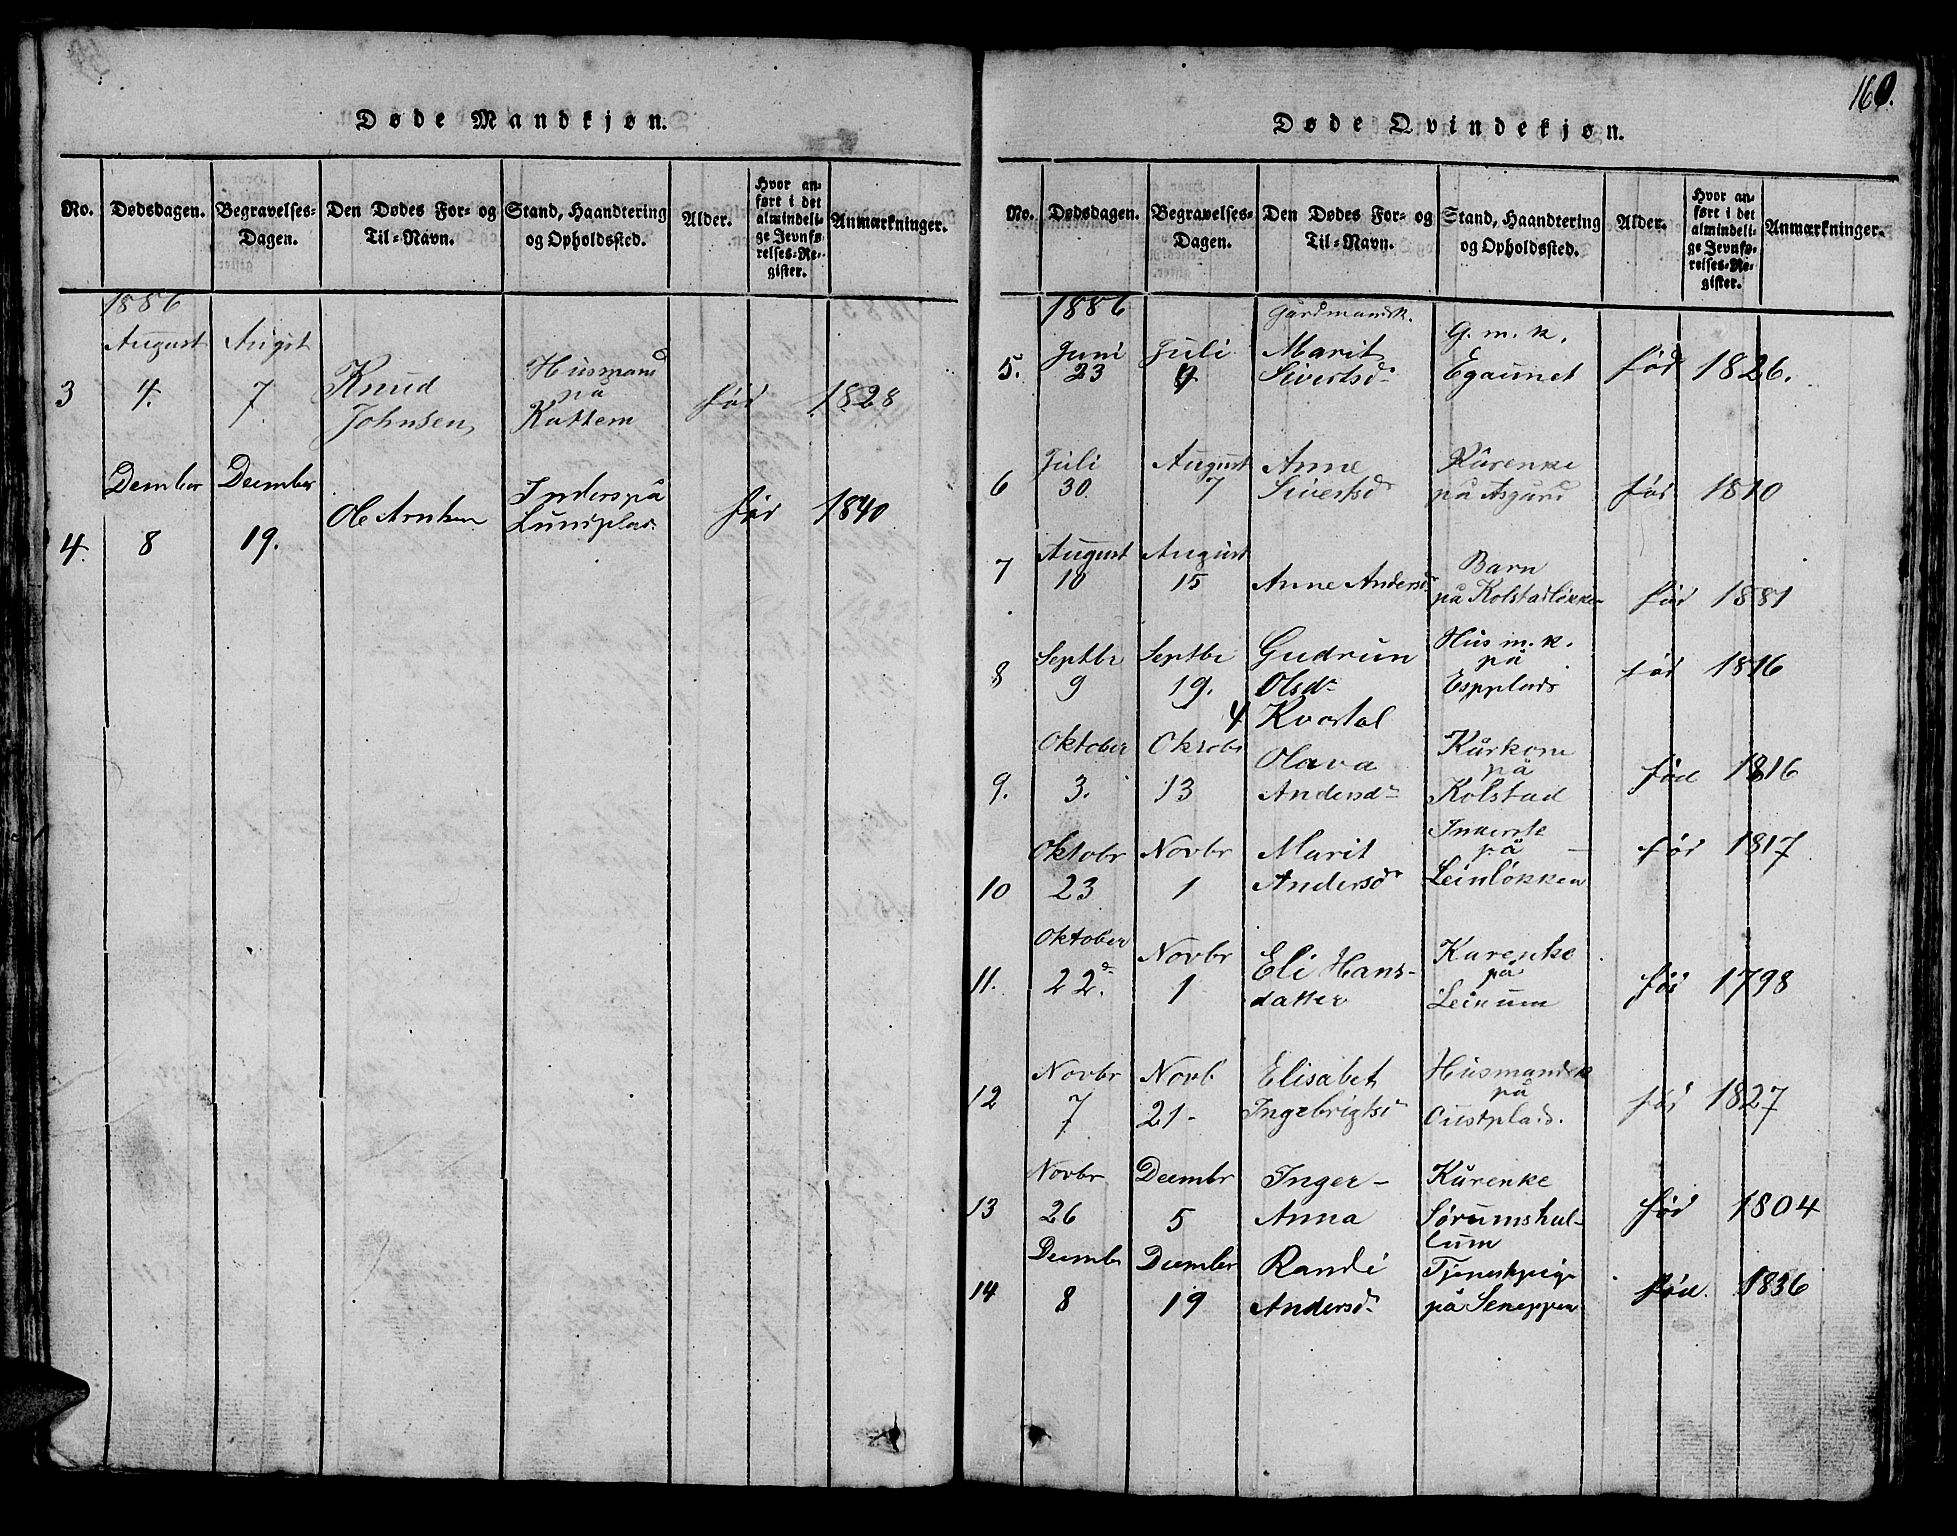 160.
Døde Mandkjøn.
No. Dødsdagen. Begravelses-Dagen. Den Dødes For- og Til-Navn. Stand, Haandtering og Opholdssted. Alder. Hvor anført i det almindelige Jevnførelses-Register. Anmærkninger.
1886
August August
3 4. 7. Knud Johnsen, Husmand på Kattem fød 1828
Dember Deember
4. 8 19. Ole Arntsen Inders på Lundplad. fød 1840
Døde Qvindekjøn.
No. Dødsdagen. Begravelses-Dagen. Den Dødes For- og Til-Navn. Stand, Haandtering og Opholdssted. Alder. Hvor anført i det almindelige Jevnførelses-Register. Anmærkninger.
1886 Gårdmandsk.
5. Juni 23 Juli Marit Sivertsd. G. m. k. Egaunet fød 1826.
6 Juli 30. August 7 Anne Sivertsd Kårenke på Asgård fød 1810
7 August 10 August 15 Anne Andersd. Barn på Kolstadløkken fød 1881
8 Septbr 9 Septbr 19. Gudrun Olsd. Hus m. k. på Espplads fød 1816
4 Kvartal
9. Oktober 3. Oktobr 13 Olava Andersd. Kårkone på Kolstad fød 1816
10 Oktobr 23 Novbr 1 Marit Andersd. på Leinløkken fød 1817
11. Oktober 22. Novbr 1 Eli Hans-datter Karenke på Leinum fød 1798
12 Novbr 7 Novb 21- Elisabet Ingebrigtsd Husmandsk på Oustplads. fød 1827
13 Novbr 26 Deembr 5 Inger-Anna Kårenke Sørumshullum fød 1804
14 Deembr 8 Deember 19 Randi Andersd. Tjenestpige på fød. 1836